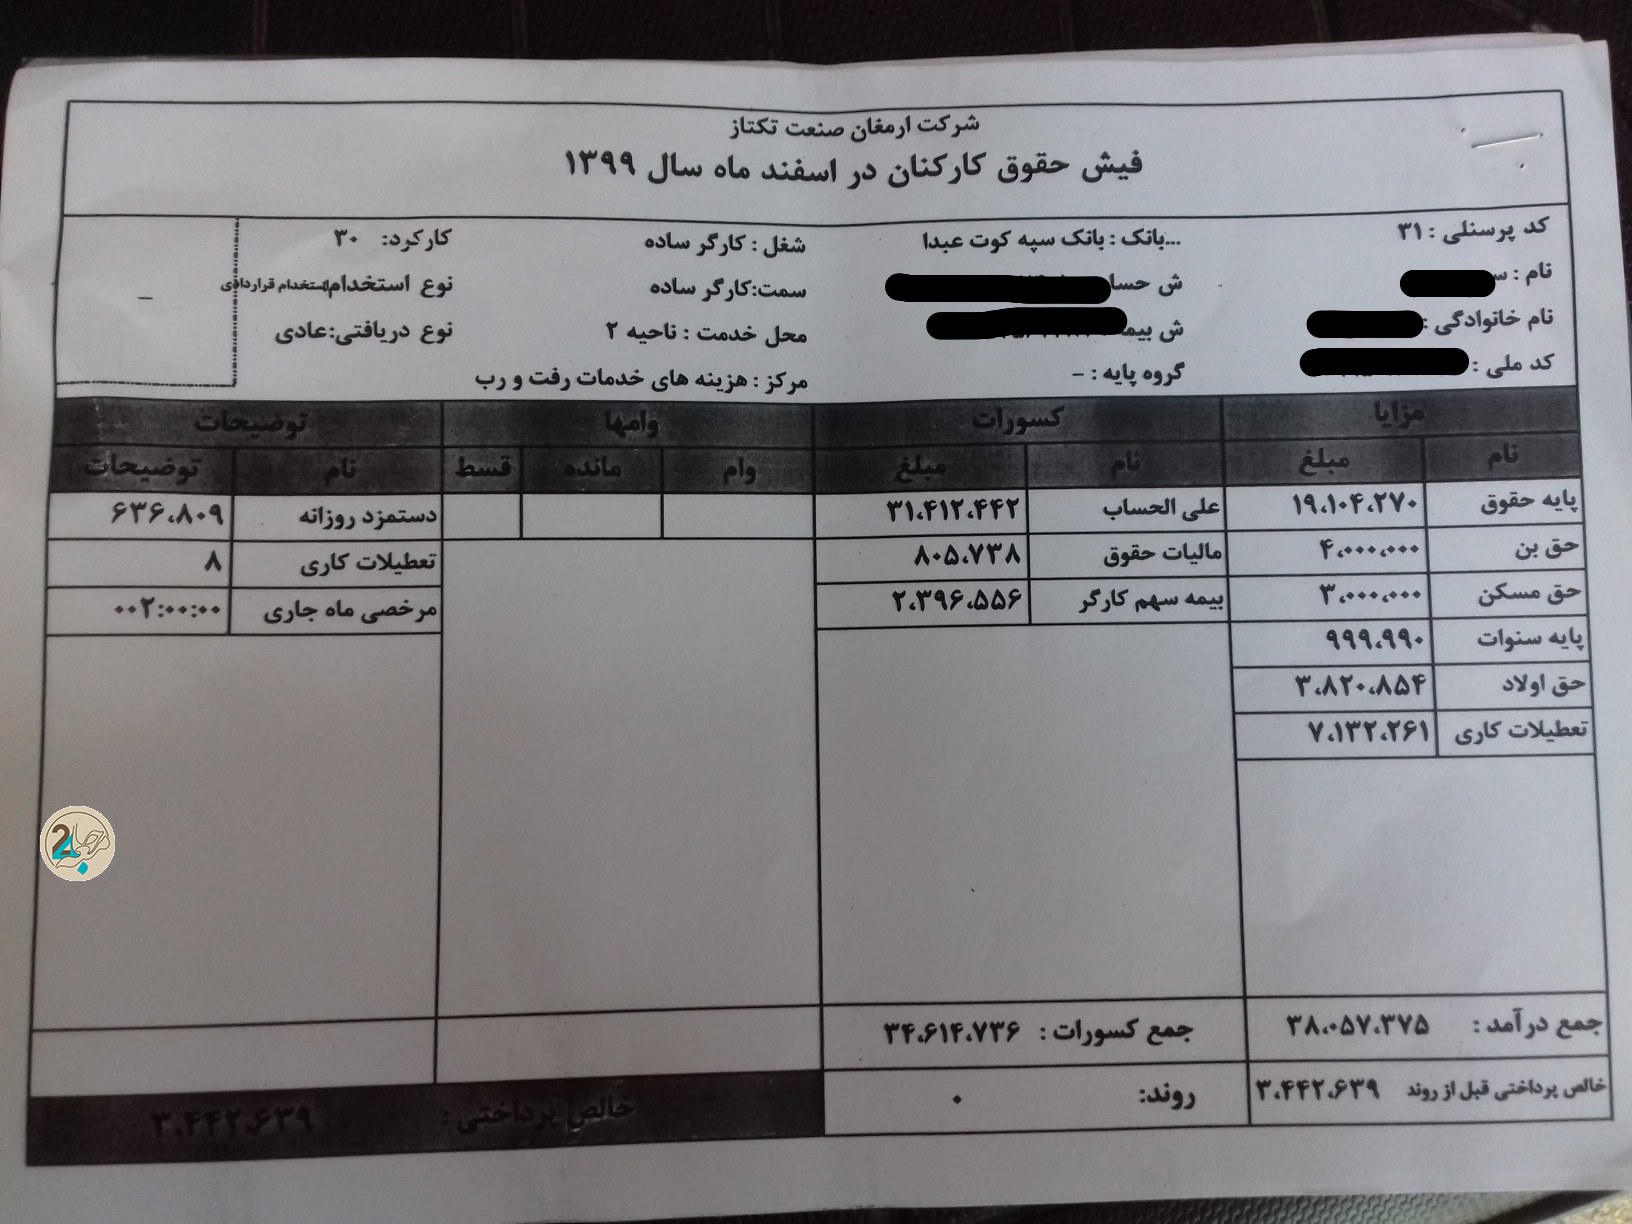 شرکت ارمغان صنعت تکتاز
فیش حقوق کارکنان در اسفند ماه سال ۱۳۹۹
کد پرسنلی : ۳۱
نام :
نام خانوادگی :
کد ملی :
...بانک : بانک سپه کوت عبدا
ش حسا
ش بیمه
گروه پایه : -
شغل : کارگر ساده
سمت:کارگر ساده
محل خدمت : ناحیه ۲
مرکز : هزینه های خدمات رفت و رب
کارکرد: ۳۰
نوع استخدام:استخدام قراردادی
نوع دریافتی:عادی
-
مزایا کسورات وامها توضیحات
نام مبلغ نام مبلغ وام مانده قسط نام توضیحات
پایه حقوق ۱۹،۱۰۴،۲۷۰ علی الحساب ۳۱،۴۱۲،۴۴۲ دستمزد روزانه ۶۳۶،۸۰۹
حق بن ۴،۰۰۰،۰۰۰ مالیات حقوق ۸۰۵،۷۳۸ تعطیلات کاری ۸
حق مسکن ۳،۰۰۰،۰۰۰ بیمه سهم کارگر ۲،۳۹۶،۵۵۶ مرخصی ماه جاری ۰۰۲:۰۰:۰۰
پایه سنوات ۹۹۹،۹۹۰
حق اولاد ۳،۸۲۰،۸۵۴
تعطیلات کاری ۷،۱۳۲،۲۶۱
جمع درآمد : ۳۸،۰۵۷،۳۷۵ جمع کسورات : ۳۴،۶۱۴،۷۳۶
خالص پرداختی قبل از روند ۳،۴۴۲،۶۳۹ روند: ۰ خالص پرداختی : ۳،۴۴۲،۶۳۹